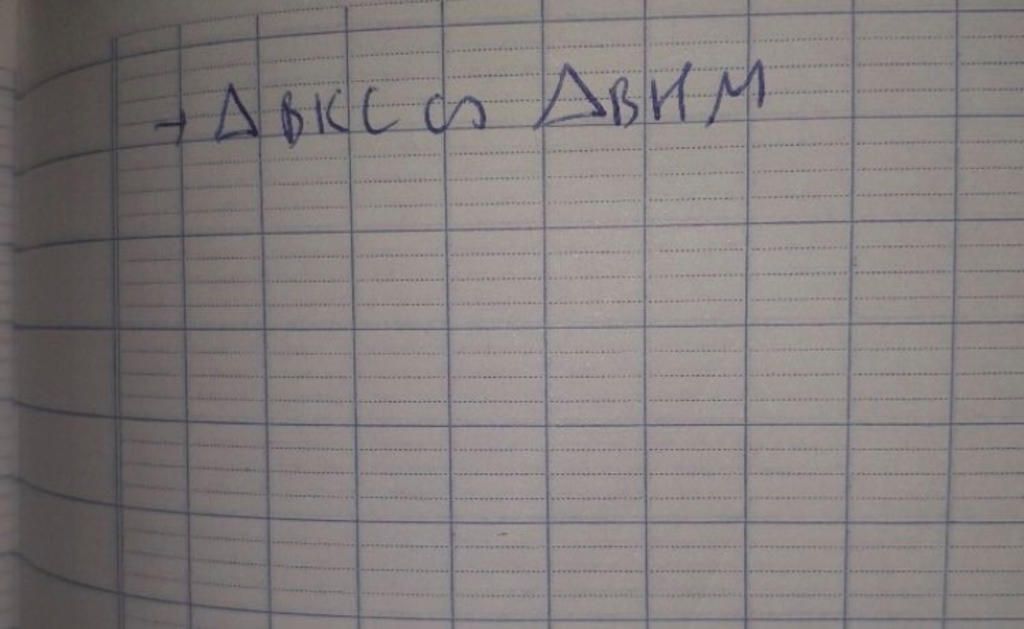 → Δ BKC ∽ Δ BHM